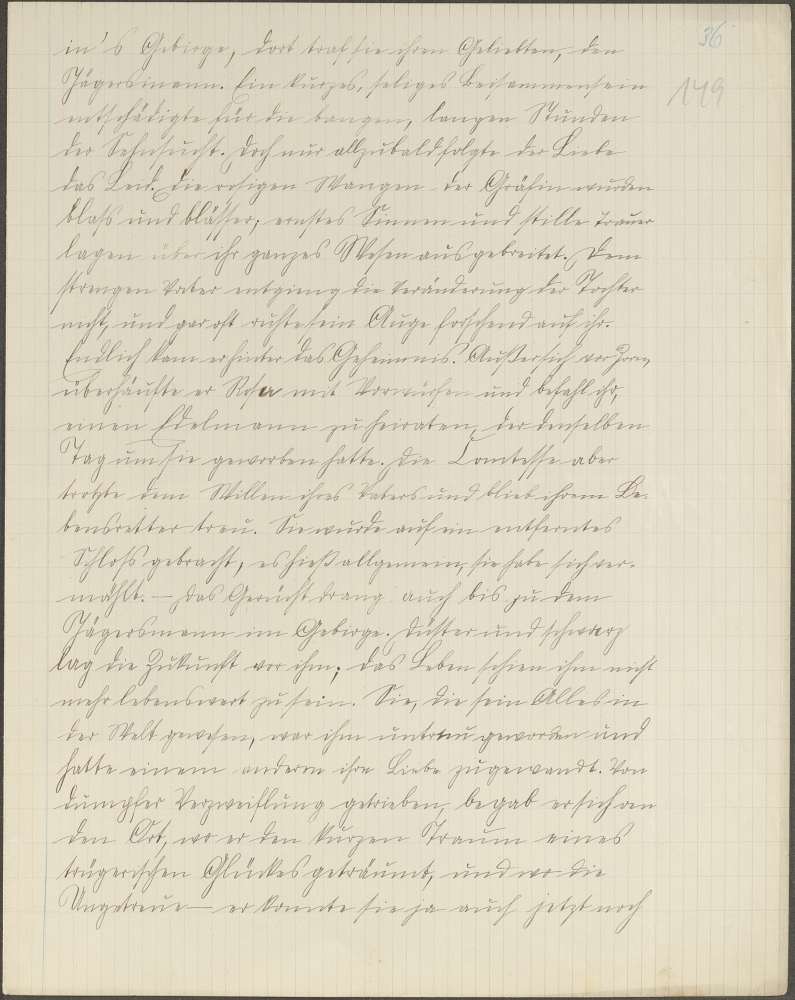 36
149
in's Gebirge, dort traf sie ihren Geliebten, den
Jägersmann. Ein kurzes, seliges Beisammensein
entschädigte für die bangen, langen Stunden
der Sehnsucht. Doch nur allzubald folgte der Liebe
das Leid. Die rosigen Wangen der Gräfin wurden
blaß und blässer, ernstes Sinnen und stille Trauer
lagen über ihr ganzes Wesen ausgebreitet. Dem
strengen Vater entgieng die Veränderung der Tochter
nicht, und gar oft ruhte sein Auge forschend auf ihr.
Endlich kam er hinter das Geheimnis. Außer sich vor Zorn,
überhäufte er Rosa mit Vorwürfen und befahl ihr,
einen Edelmann zu heiraten, der denselben
Tag um sie geworben hatte. Die Comtesse aber
trotzte dem Willen ihres Vaters und blieb ihrem Le-
bensretter treu. Sie wurde auf ein entferntes
Schloß gebracht, es hieß allgemein, sie habe sich ver-
mählt. — Das Gerücht drang auch bis zu dem
Jägersmann im Gebirge. Düster und schwarz
lag die Zukunft vor ihm; das Leben schien ihm nicht
mehr lebenswert zu sein. Sie, die sein Alles in
der Welt gewesen, war ihm untreu geworden und
hatte einem anderen ihre Liebe zugewandt. Von
dumpfer Verzweiflung getrieben, begab er sich an
den Ort, wo er den kurzen Traum eines
trügerischen Glückes geträumt, und wo die
Ungetreue — er konnte sie ja auch jetzt noch